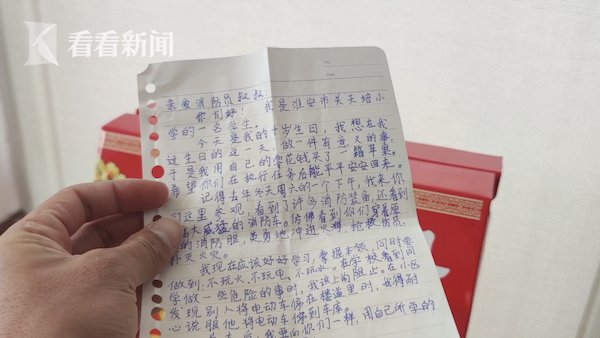 看看新闻
亲爱消防员叔叔:
你们好! 我是淮安市关天培小
学的一名学生。
今天是我的十岁生日，我想在我
过生日的这一天，做一件有意义的事，
于是我用自己的零花钱买了一箱苹果。
希望你们在执行任务后能平平安安回来。
记得去年冬天周六的一个下午，我来你
们这里参观，看到了许多消防装备，还看到
高大威猛的消防车。仿佛看到你们穿着厚
的消防服，英勇地冲进火裡，抢救伤员，
扑灭火灾。
我现在应该好好学习，掌握本领，同时要
做到:不玩火、不玩电、不玩水。在学校看到同
学做一些危险的事时，我该上前阻止。在小区
发现别人将电动车停在楼道里时，我得耐
心说服他将电动车停到车库。
我要向你们一样，用自己所学的